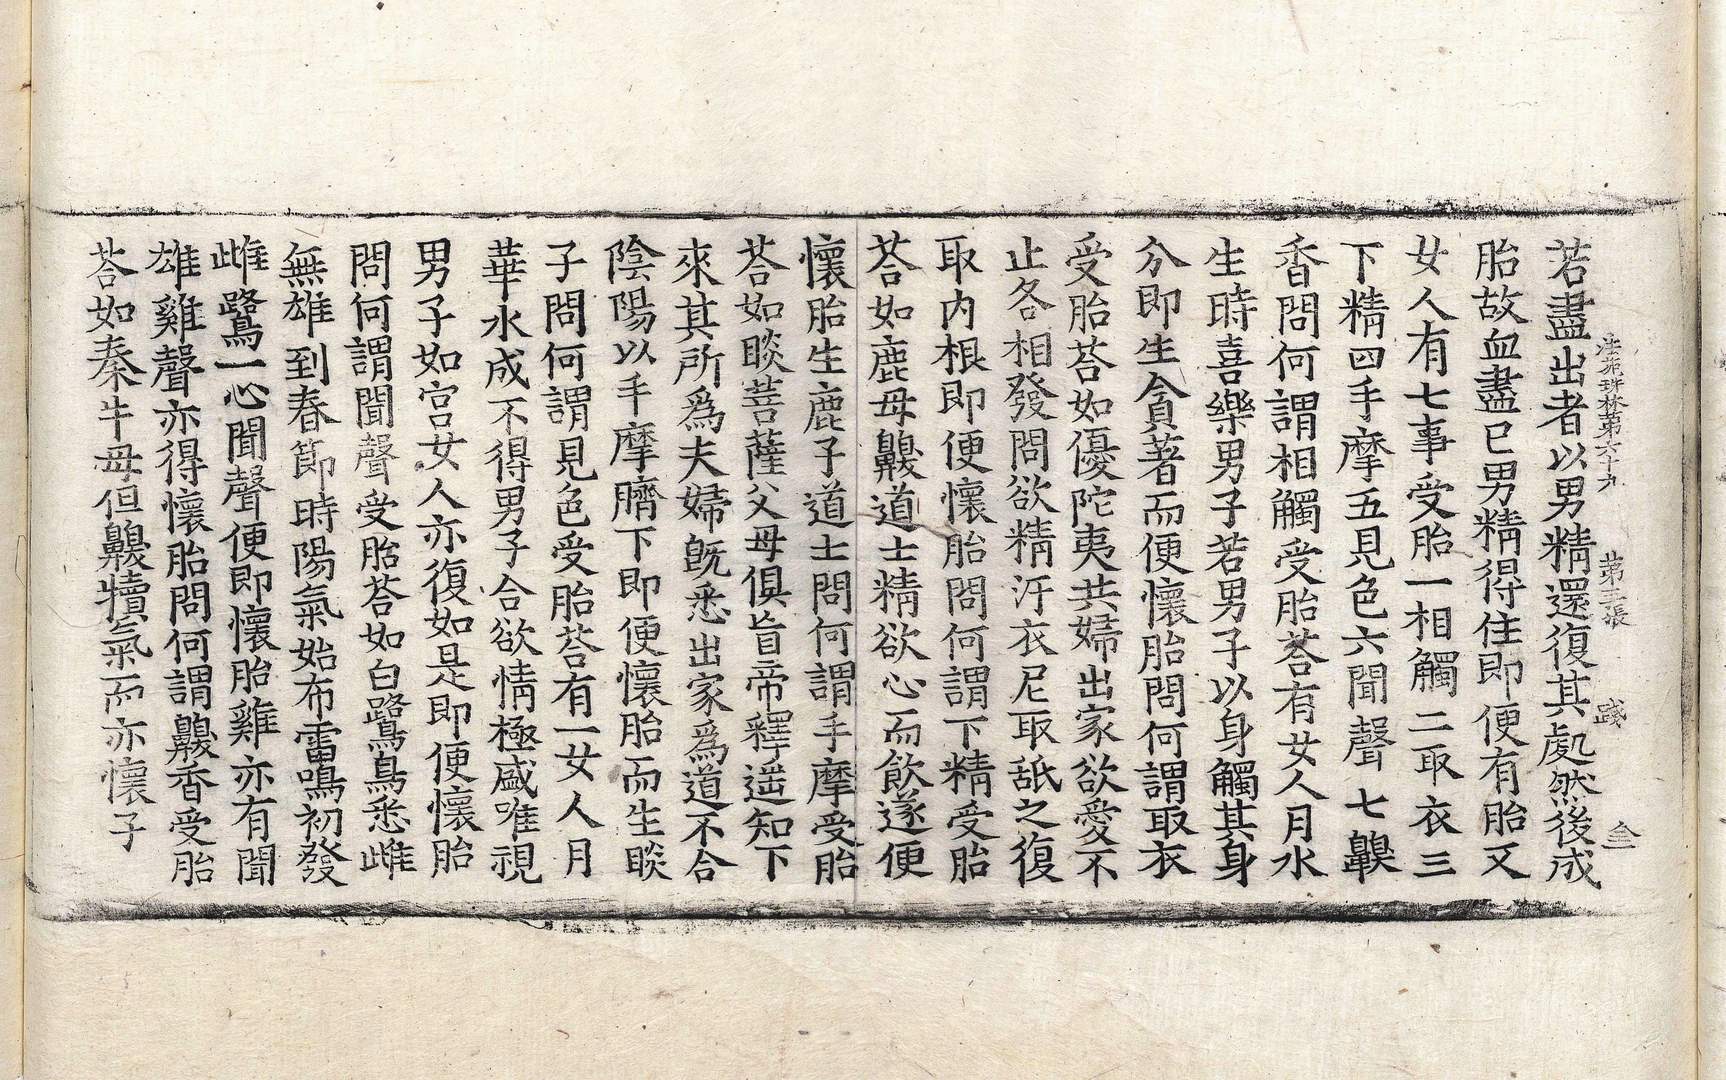 法苑珠林第六十九　第三張　踐
若盡出者以男精還復其處然後成
胎故血盡已男精得住即便有胎又
女人有七事受胎一相觸二取衣三
下精四手摩五見色六聞聲七齅
香問何謂相觸受胎荅有女人月水
生時喜樂男子若男子以身觸其身
分即生貪著而便懷胎問何謂取衣
受胎荅如優陀夷共婦出家欲愛不
止各相發問欲精汙衣尼取舐之復
取内根即便懷胎問何謂下精受胎
荅如鹿母齅道士精欲心而飲遂便
懷胎生鹿子道士問何謂手摩受胎
荅如睒菩薩父母俱盲帝釋遥知下
來其所為夫婦既悉出家為道不合
陰陽以手摩臍下即便懷胎而生睒
子問何謂見色受胎荅有一女人月
華水成不得男子合欲情極盛唯視
男子如宫女人亦復如是即便懷胎
問何謂聞聲受胎荅如白鷺鳥悉雌
無雄到春節時陽氣始布雷鳴初發
雌鷺一心聞聲便即懷胎雞亦有聞
雄雞聲亦得懷胎問何謂齅香受胎
荅如秦牛母但齅犢氣而亦懷子